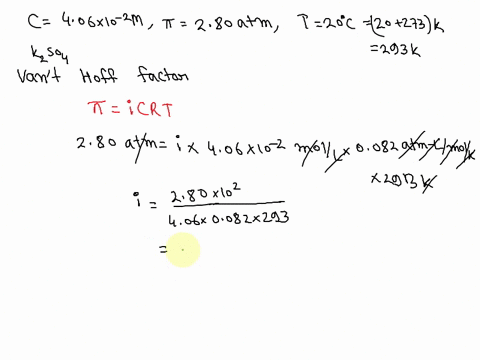 C = 4.06×10⁻²M, π = 2.80 atm, T = 20°C = (20+273)K
= 293K
K₂SO₄
Van't Hoff factor
π = iCRT
2.80 atm = i × 4.06×10⁻² mol/L × 0.082 atm-L/mol/K
× 293 K
i = 2.80 × 10² / 4.06 × 0.082 × 293
=